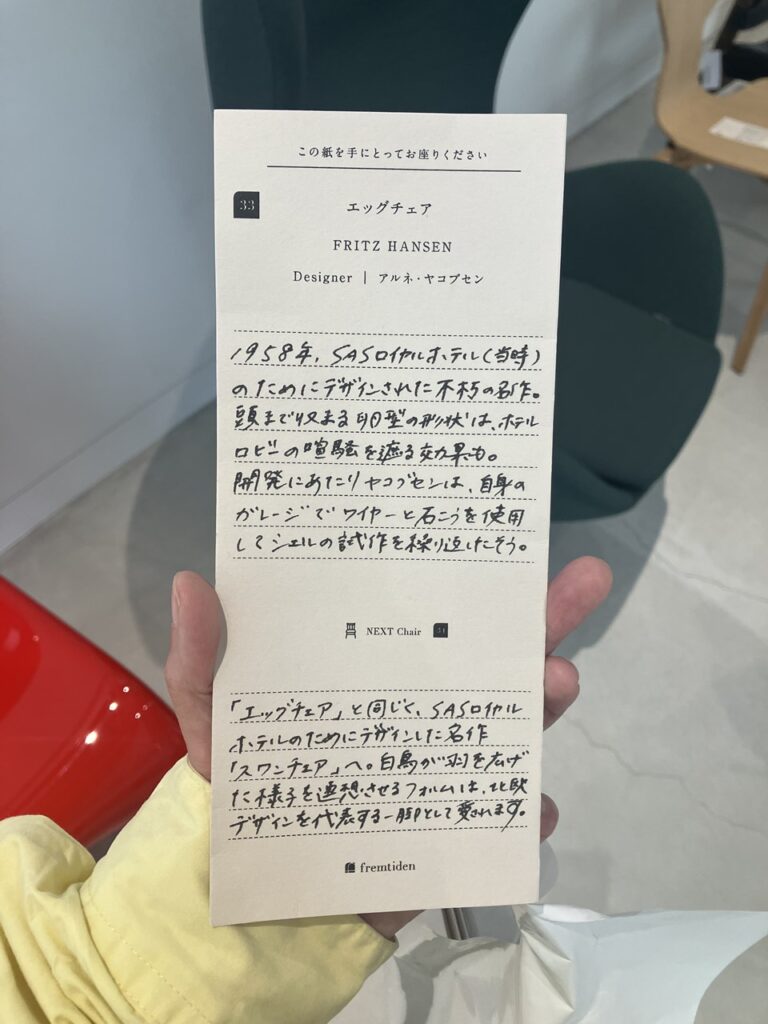 この紙を手にとってお座りください
33
エッグチェア
FRITZ HANSEN
Designer | アルネ・ヤコブセン
1958年、SASロイヤルホテル(当時)
のためにデザインされた不朽の名作。
頭まで収まる卵型の形状は、ホテル
ロビーの喧騒を遮る効果も。
開発にあたりヤコブセンは、自身の
ガレージでワイヤーと石こうを使用
してシェルの試作を繰り返したそう。
NEXT Chair 34
「エッグチェア」と同じく、SASロイヤル
ホテルのためにデザインした名作
「スワンチェア」へ。白鳥が羽を広げ
た様子を連想させるフォルムは、北欧
デザインを代表する一脚として愛されます。
fremtiden